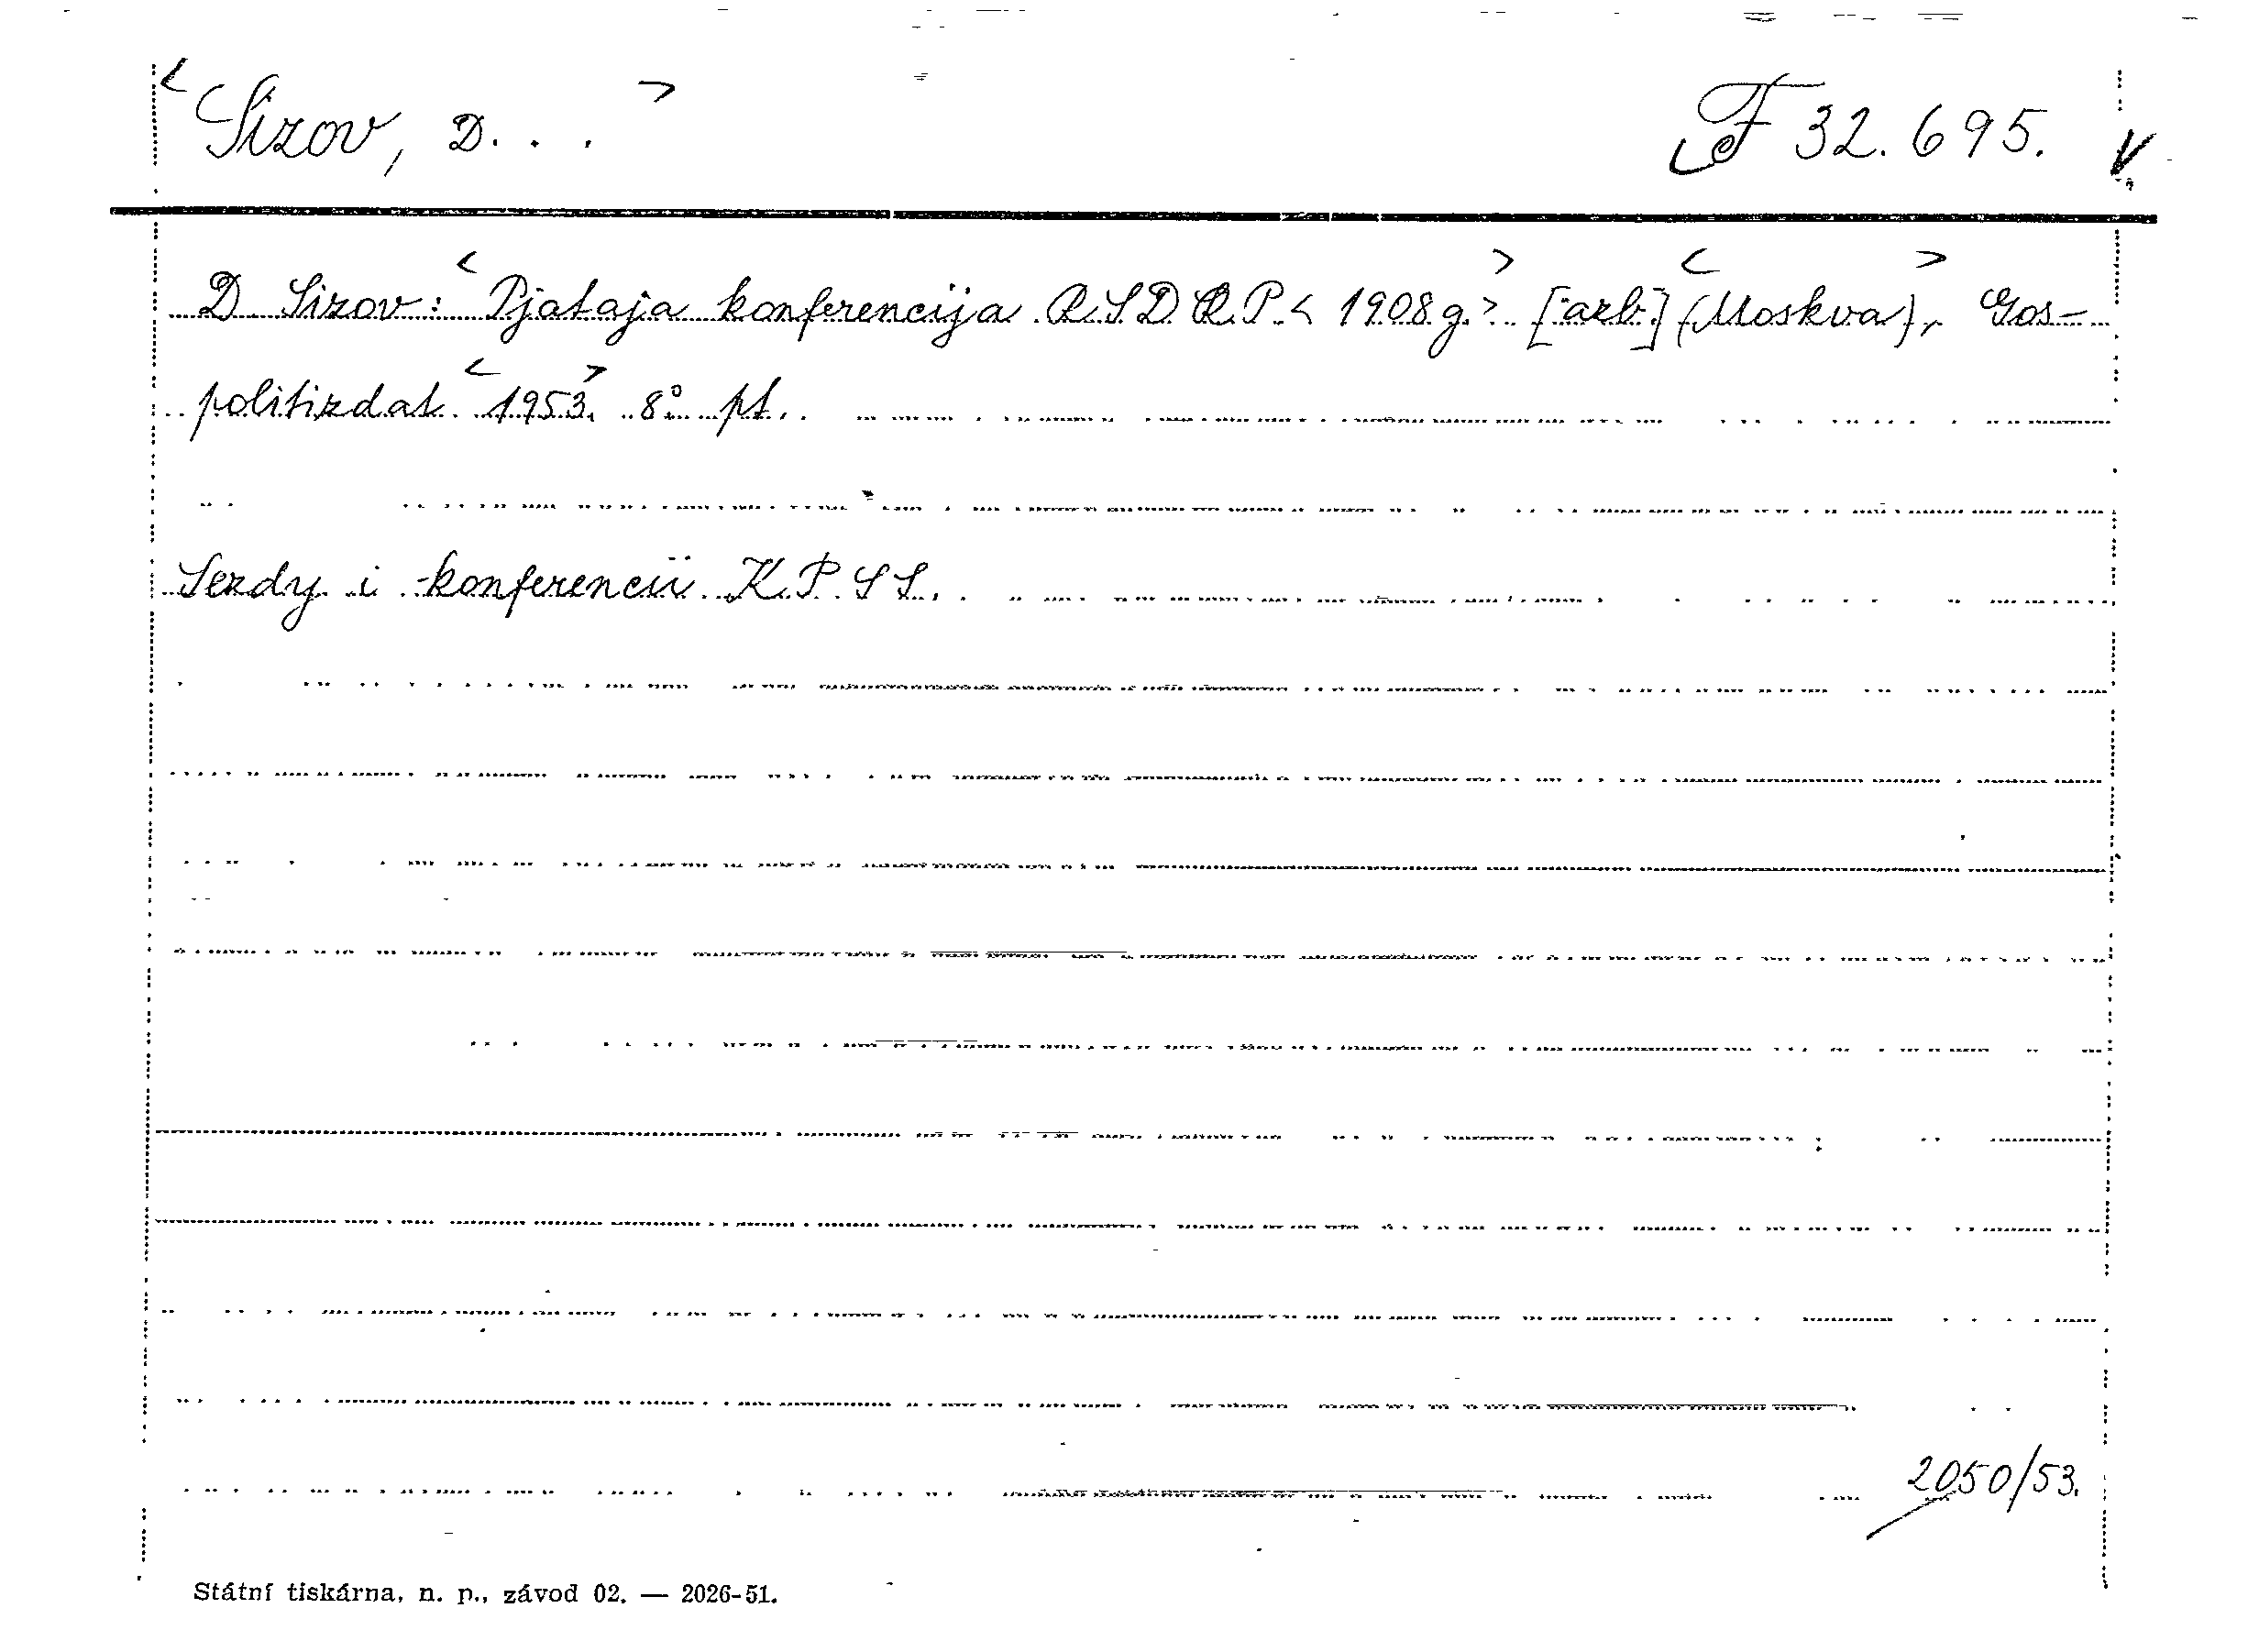 <Sizov, D. . .> F 32.695. V
D. Sizov: <Pjataja konferencija R.S.D.R.P. <1908 g.>> [azb.] <(Moskva)>, Gos-
politizdat <1953.> 8° pt.
Sezdy i konferencii K.P.S.S.
2050/53.
Státní tiskárna, n. p., závod 02. — 2026-51.